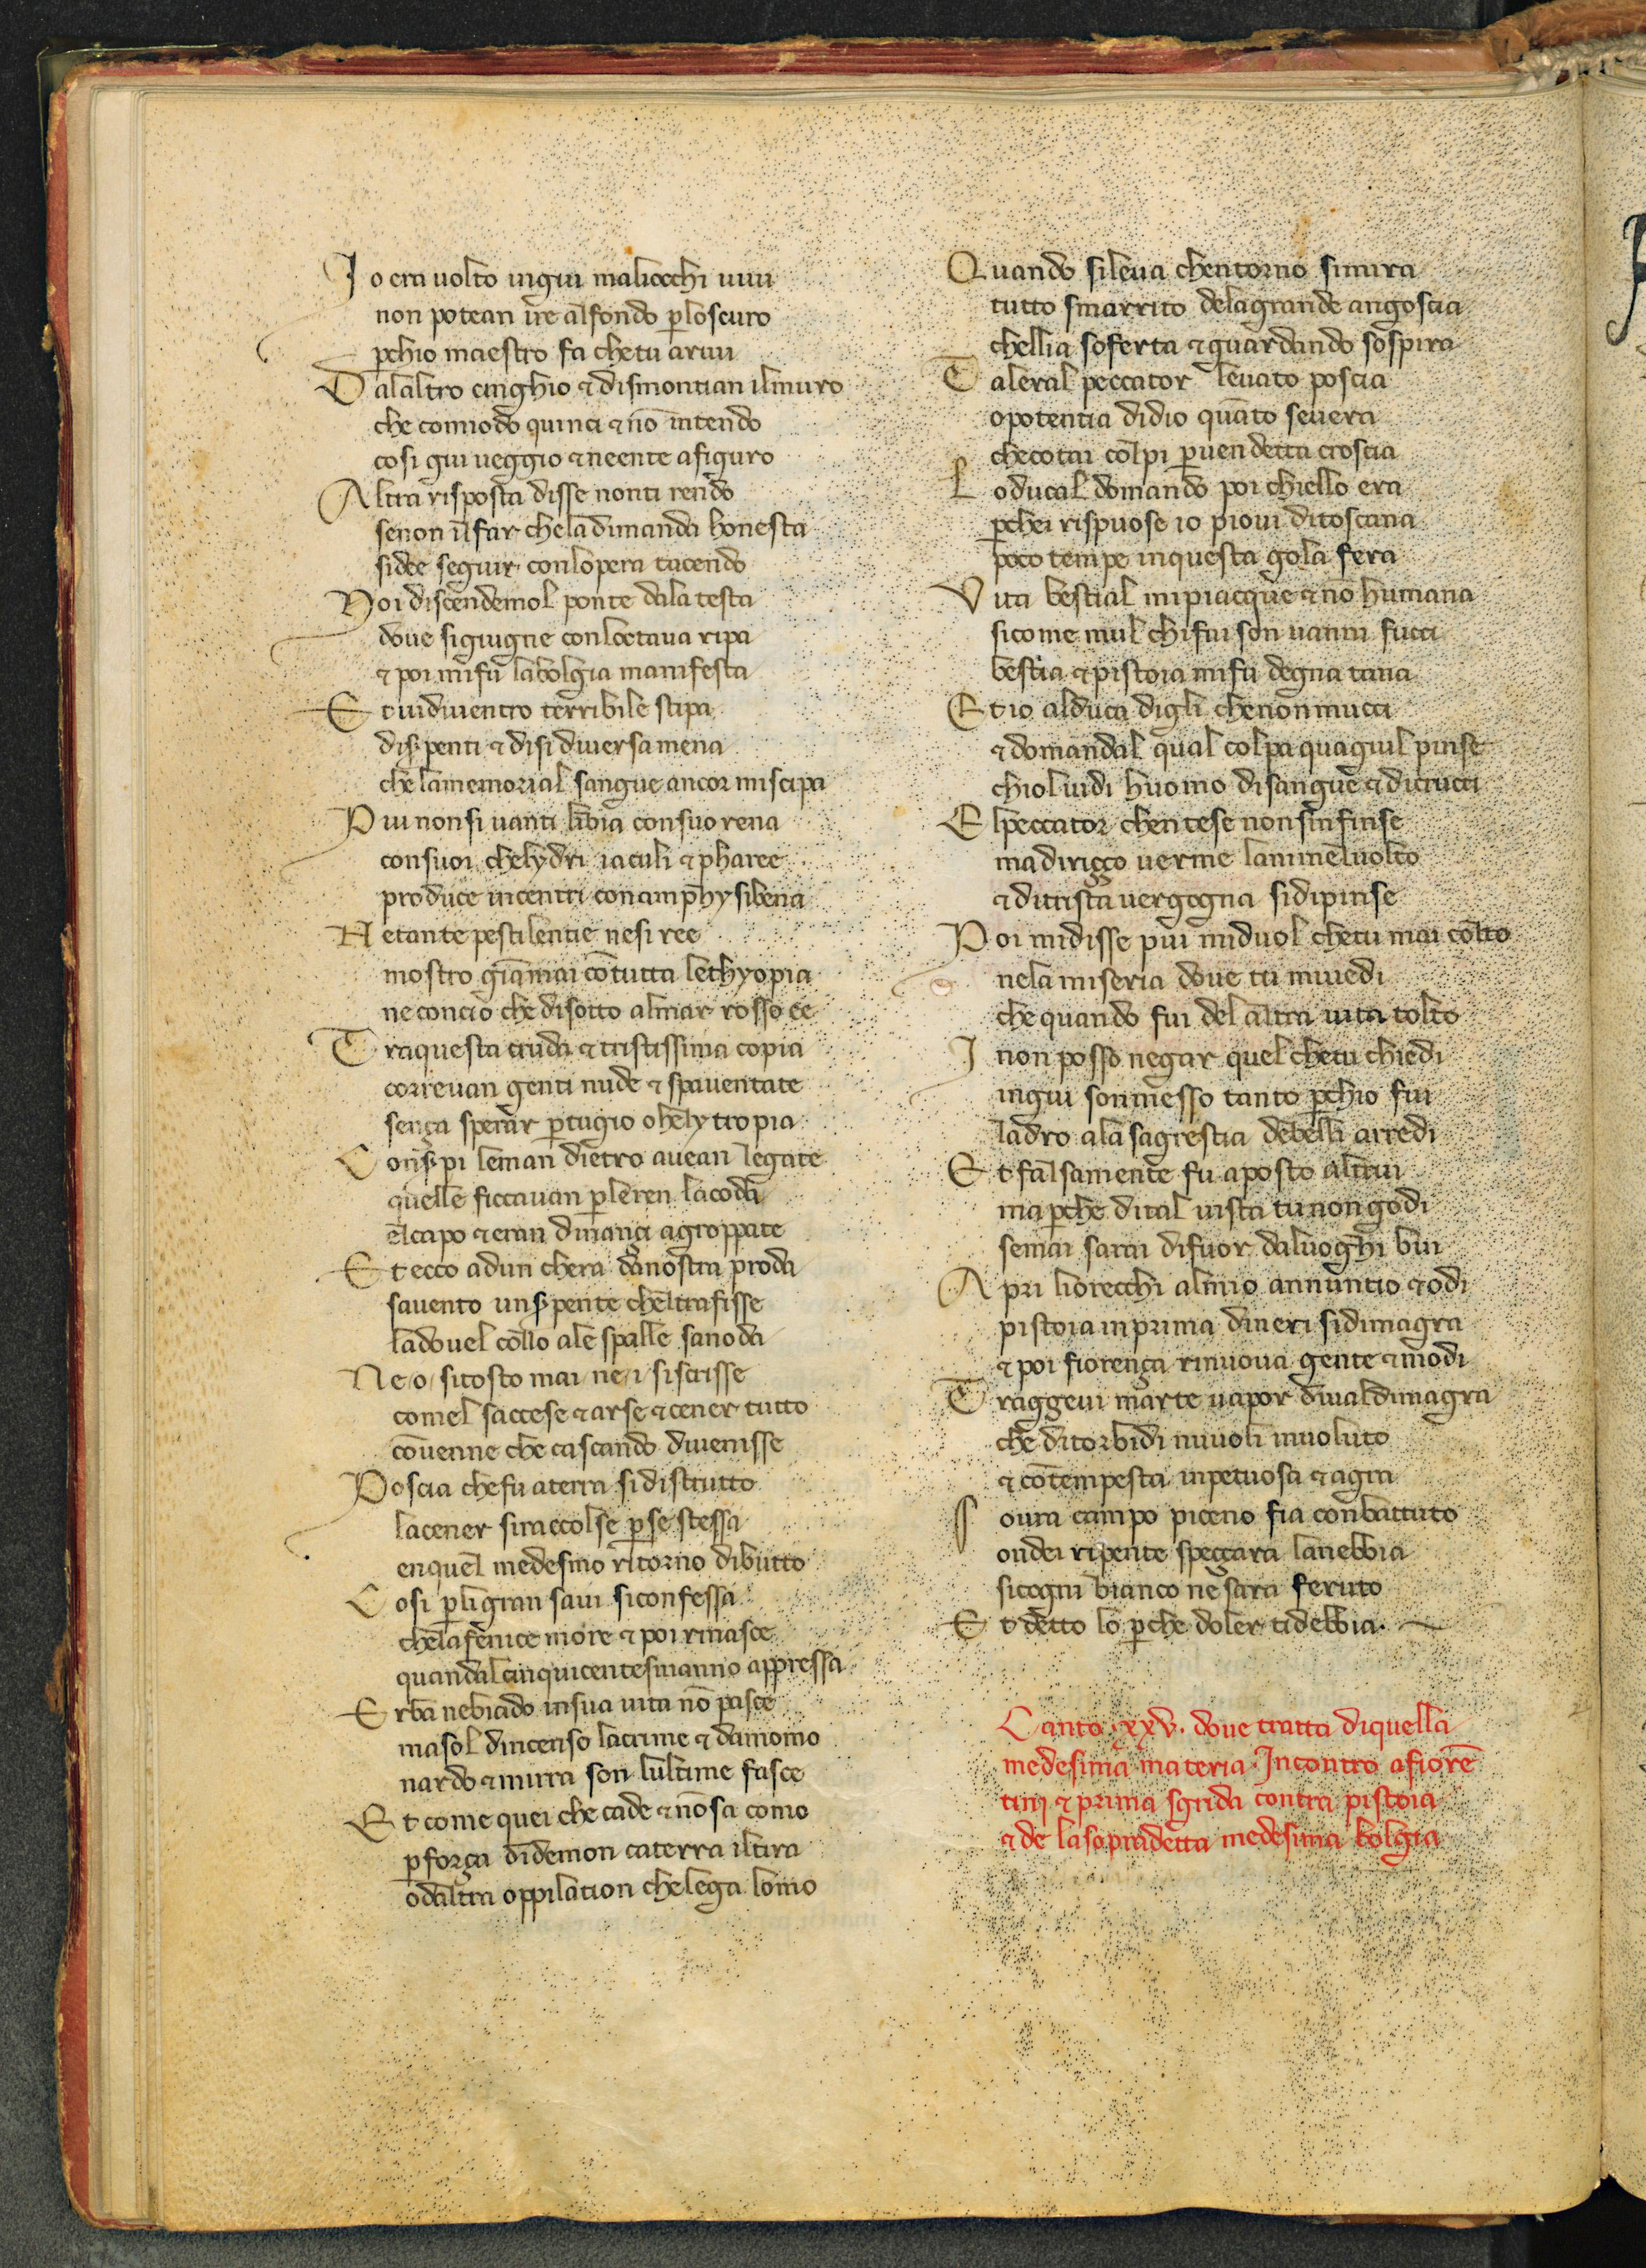 Io era uolto ingiu ma liocchi uiui
non potean ire al fondo p loscuro
pchio maestro fa che tu arriui
Dalaltro cinghio & dismontian ilmuro
che comiodo quinci & nō intendo
cosi giu ueggio & neente afiguro
Altra risposta disse nonti rendo
senon il far chela dimanda honesta
sidee seguir conlopera tacendo
Noi discendemol ponte dala testa
doue sigiugne conlottaua ripa
& poi mi fu labolgia manifesta
Et uidiuentro terribile stipa
di spenti & disi diuersa mena
che la memorial sangue ancor mi scipa
Piu nonsi uanti libia consuo rena
consuoi chelydri iaculi & pharee
produce incentri con amphysibena
Ne tante pestilentie nesi ree
mostro giamai cō tutta lethyopia
ne conciò che disotto almar rosso ee
Tra questa cruda & tristissima copia
correuan genti nude & spauentate
sença sperar ptugio o helytropia
Con spi leman dietro auean legate
quelle ficcauan p leren lacoda
el capo & eran dinançi agroppate
Et ecco ad un chera da nostra proda
sauento un spente chel trafisse
ladouel collo ale spalle sanoda
Ne /o/ sitosto mai ne /i/ siscrisse
comel saccese & arse & cener tutto
cōuenne che cascando diuenisse
Poscia chefu aterra si distrutto
lacener siraccolse p se stessa
enquel medesmo ritorno dibutto
Cosi p li gran saui siconfessa
che la fenice more & poi rinasce
quandal cinquicentesmanno appressa
Erba ne biado insua uita nō pasce
masol dincenso lacrime & damomo
nardo & mirra son lultime fasce
Et come quei che cade & nō sa como
p força di demon caterra iltira
o daltra oppilation che lega lomo
Quando sileua chentorno simira
tutto smarrito dela grande angoscia
chellia soferta & guardando sospira
Taleral peccator leuato poscia
o potentia didio quāto seuera
checotai colpi p uendetta croscia
Lo ducal domando poi chiello era
pchei rispuose io pioui ditoscana
poco tempe inquesta gola fera
Vita bestial mipiacque & nō humana
sicome mul chi fui son uanni fucci
bestia & pistoia mi fu degna tana
Et io alduca digli chenon mucci
& domandal qual colpa quagiul pinse
chiol uidi huomo disangue & dicrucci
El peccator chentese non sinfinse
ma diriçço uerme lanimel uolto
& ditrista uergogna sidipinse
Poi mi disse piu miduol chetu mai colto
nela miseria doue tu miuedi
che quando fui del altra uita tolto
I non posso negar quel chetu chiedi
ingiu son messo tanto pchio fui
ladro ala sagrestia debelli arredi
Et falsamente fu aposto altrui
ma pche dital uista tu non godi
semai sarai difuor daluoghi bui
Apri liorecchi almio annuntio & odi
pistoia in prima di neri sidimagra
& poi fiorença rinuoua gente & modi
Traggeui marte uapor diualdimagra
che di torbidi nuuoli inuoluto
& cō tempesta inpetuosa & agra
Soura campo piceno fia conbattuto
ondei ripente speççara lanebbia
sicogni bianco ne sara feruto
Et detto lo pche doler tidebbia.
Canto .xxv. doue tratta diquella
medesima materia. Incontro afiorē
tini & prima sgrida contra pistoia
& de la sopradetta medesima bolgia